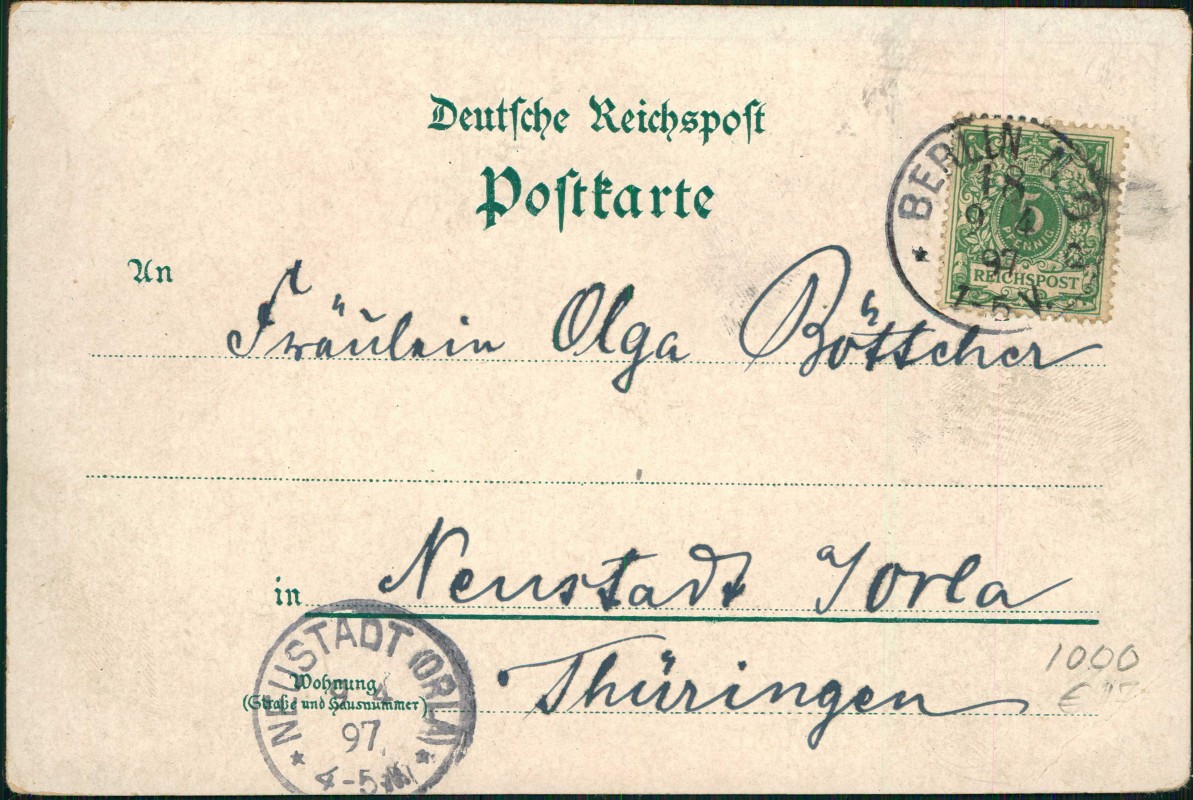 Deutsche Reichspost
Postkarte
BERLIN N
18
9 4
97
5
PFENNIG
REICHSPOST
An
Fräulein Olga Böttscher
in Neustadt /orla
Thüringen
NEUSTADT (ORLA)
9 4
97
4-5 N
Wohnung
(Straße und Hausnummer)
1000